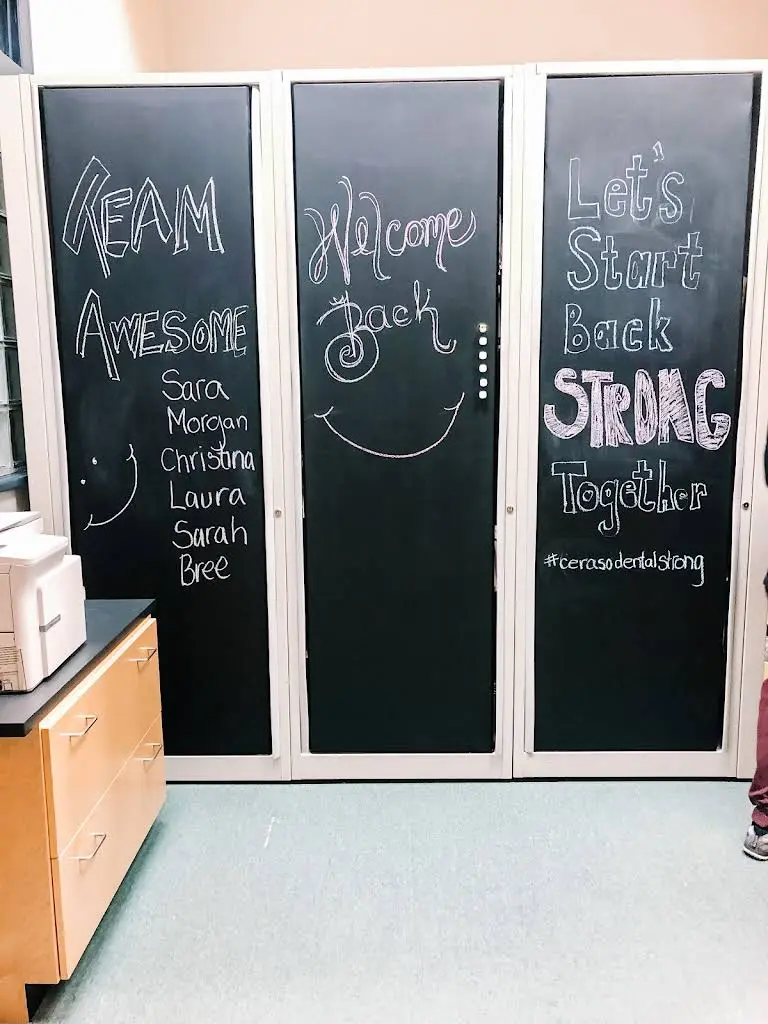 TEAM
AWESOME
Sara
Morgan
Christina
Laura
Sarah
Bree
Welcome
Back
Let's
Start
Back
STRONG
Together
#cerasodentalstrong